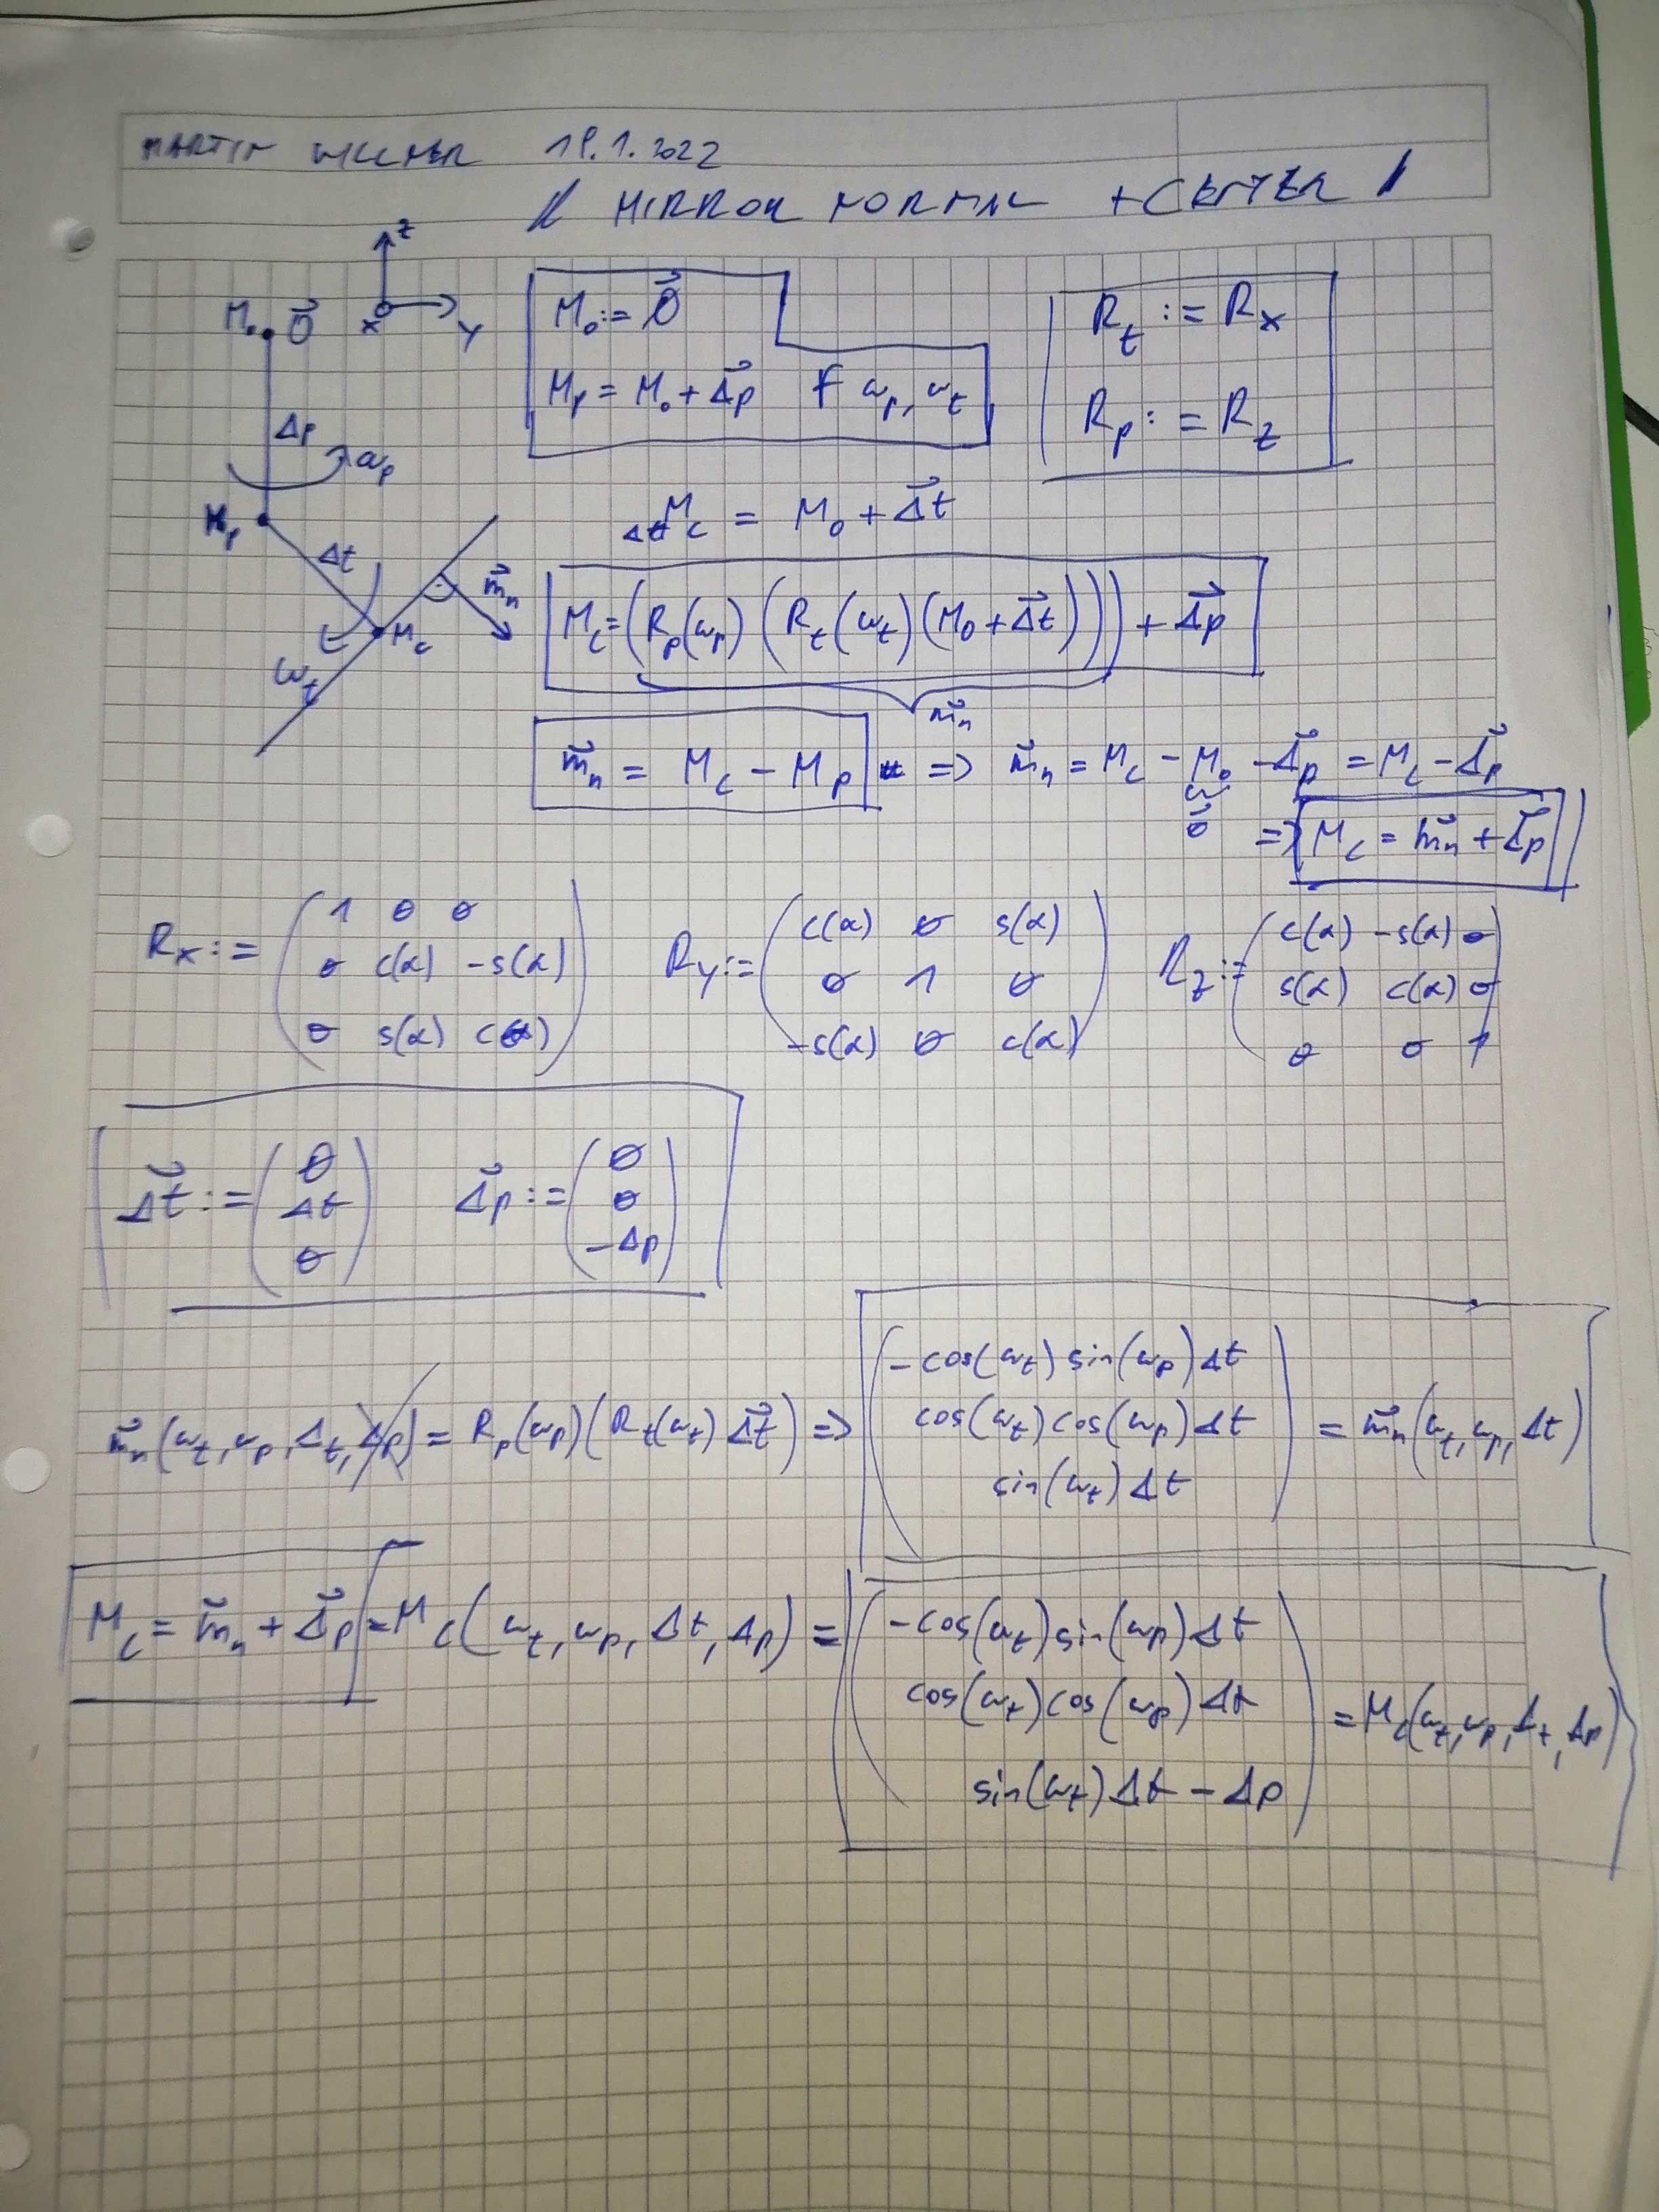 MARTIN 19.1.2022
// MIRROR NORMAL + CENTER //
z
y
x
M₀ 0⃗
Δp
ωp
Mp
Δt
m⃗n
Mc
ωt
M₀ := 0⃗
Mp = M₀ + Δ⃗p ∀ ωp, ωt
Rt := Rx
Rp := Rz
Δt Mc = M₀ + Δ⃗t
Mc = (Rp(ωp) (Rt(ωt) (M₀ + Δ⃗t))) + Δ⃗p
m⃗n
m⃗n = Mc − Mp => m⃗n = Mc − M₀ − Δ⃗p = Mc − Δ⃗p
0⃗ => Mc = m⃗n + Δ⃗p
Rx := ( 1 0 0
0 c(α) −s(α)
0 s(α) c(α) )
Ry := ( c(α) 0 s(α)
0 1 0
−s(α) 0 c(α) )
Rz := ( c(α) −s(α) 0
s(α) c(α) 0
0 0 1 )
Δ⃗t := ( 0
Δt
0 )
Δ⃗p := ( 0
0
−Δp )
m⃗n(ωt, ωp, Δt, Δp) = Rp(ωp)(Rt(ωt) Δ⃗t) =>
( −cos(ωt) sin(ωp) Δt
cos(ωt) cos(ωp) Δt
sin(ωt) Δt )
= m⃗n(ωt, ωp, Δt)
Mc = m⃗n + Δ⃗p = Mc(ωt, ωp, Δt, Δp) =
( −cos(ωt) sin(ωp) Δt
cos(ωt) cos(ωp) Δt
sin(ωt) Δt − Δp )
= Mc(ωt, ωp, Δt, Δp)